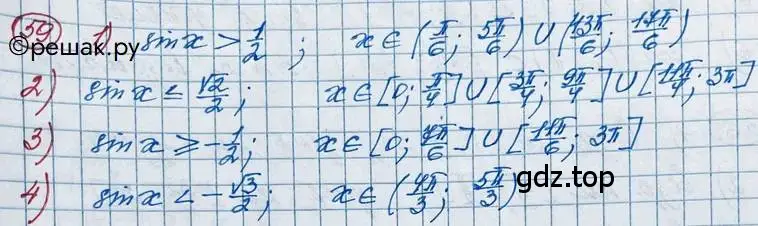 59 1) sin x > 1/2 ; x ∈ (π/6; 5π/6) ∪ (13π/6; 17π/6)
©решак.ру
2) sin x ≤ √2/2; x ∈ [0; π/4] ∪ [3π/4; 9π/4] ∪ [11π/4; 3π]
3) sin x ≥ -1/2; x ∈ [0; 7π/6] ∪ [11π/6; 3π]
4) sin x < -√3/2; x ∈ (4π/3; 5π/3)
gdz.top